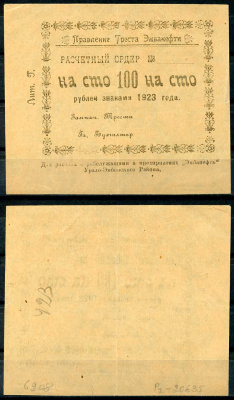 Правление Треста Эмбанефти
Лит. Г.
РАСЧЕТНЫЙ ОРДЕР №
на сто 100 на сто
рублей знаками 1923 года.
Зампред. Треста
Гл. Бухгалтер
Для расчета с рабослужащими и предприятиями „Эмбанефть"
Урало-Эмбенского Района.
423